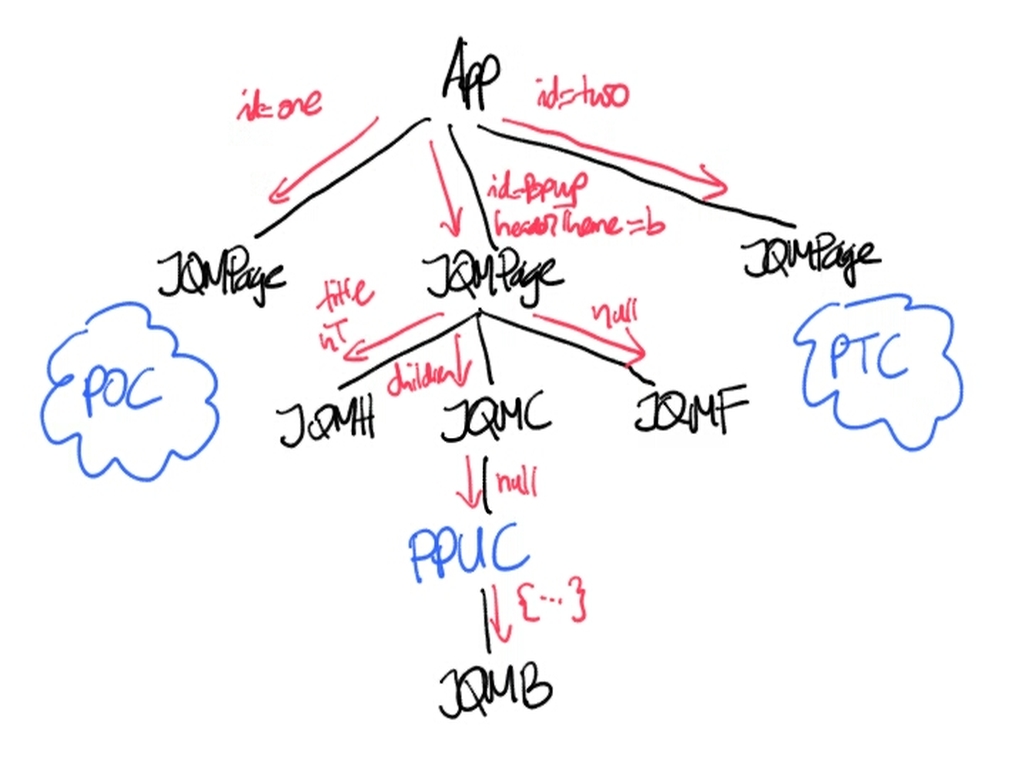 App
id=one
id=two
id=popup
headerTheme=b
JQMPage
JQMPage
JQMPage
title
hT
null
children
POC
PTC
JQMH
JQMC
JQMF
null
PPUC
{...}
JQMB